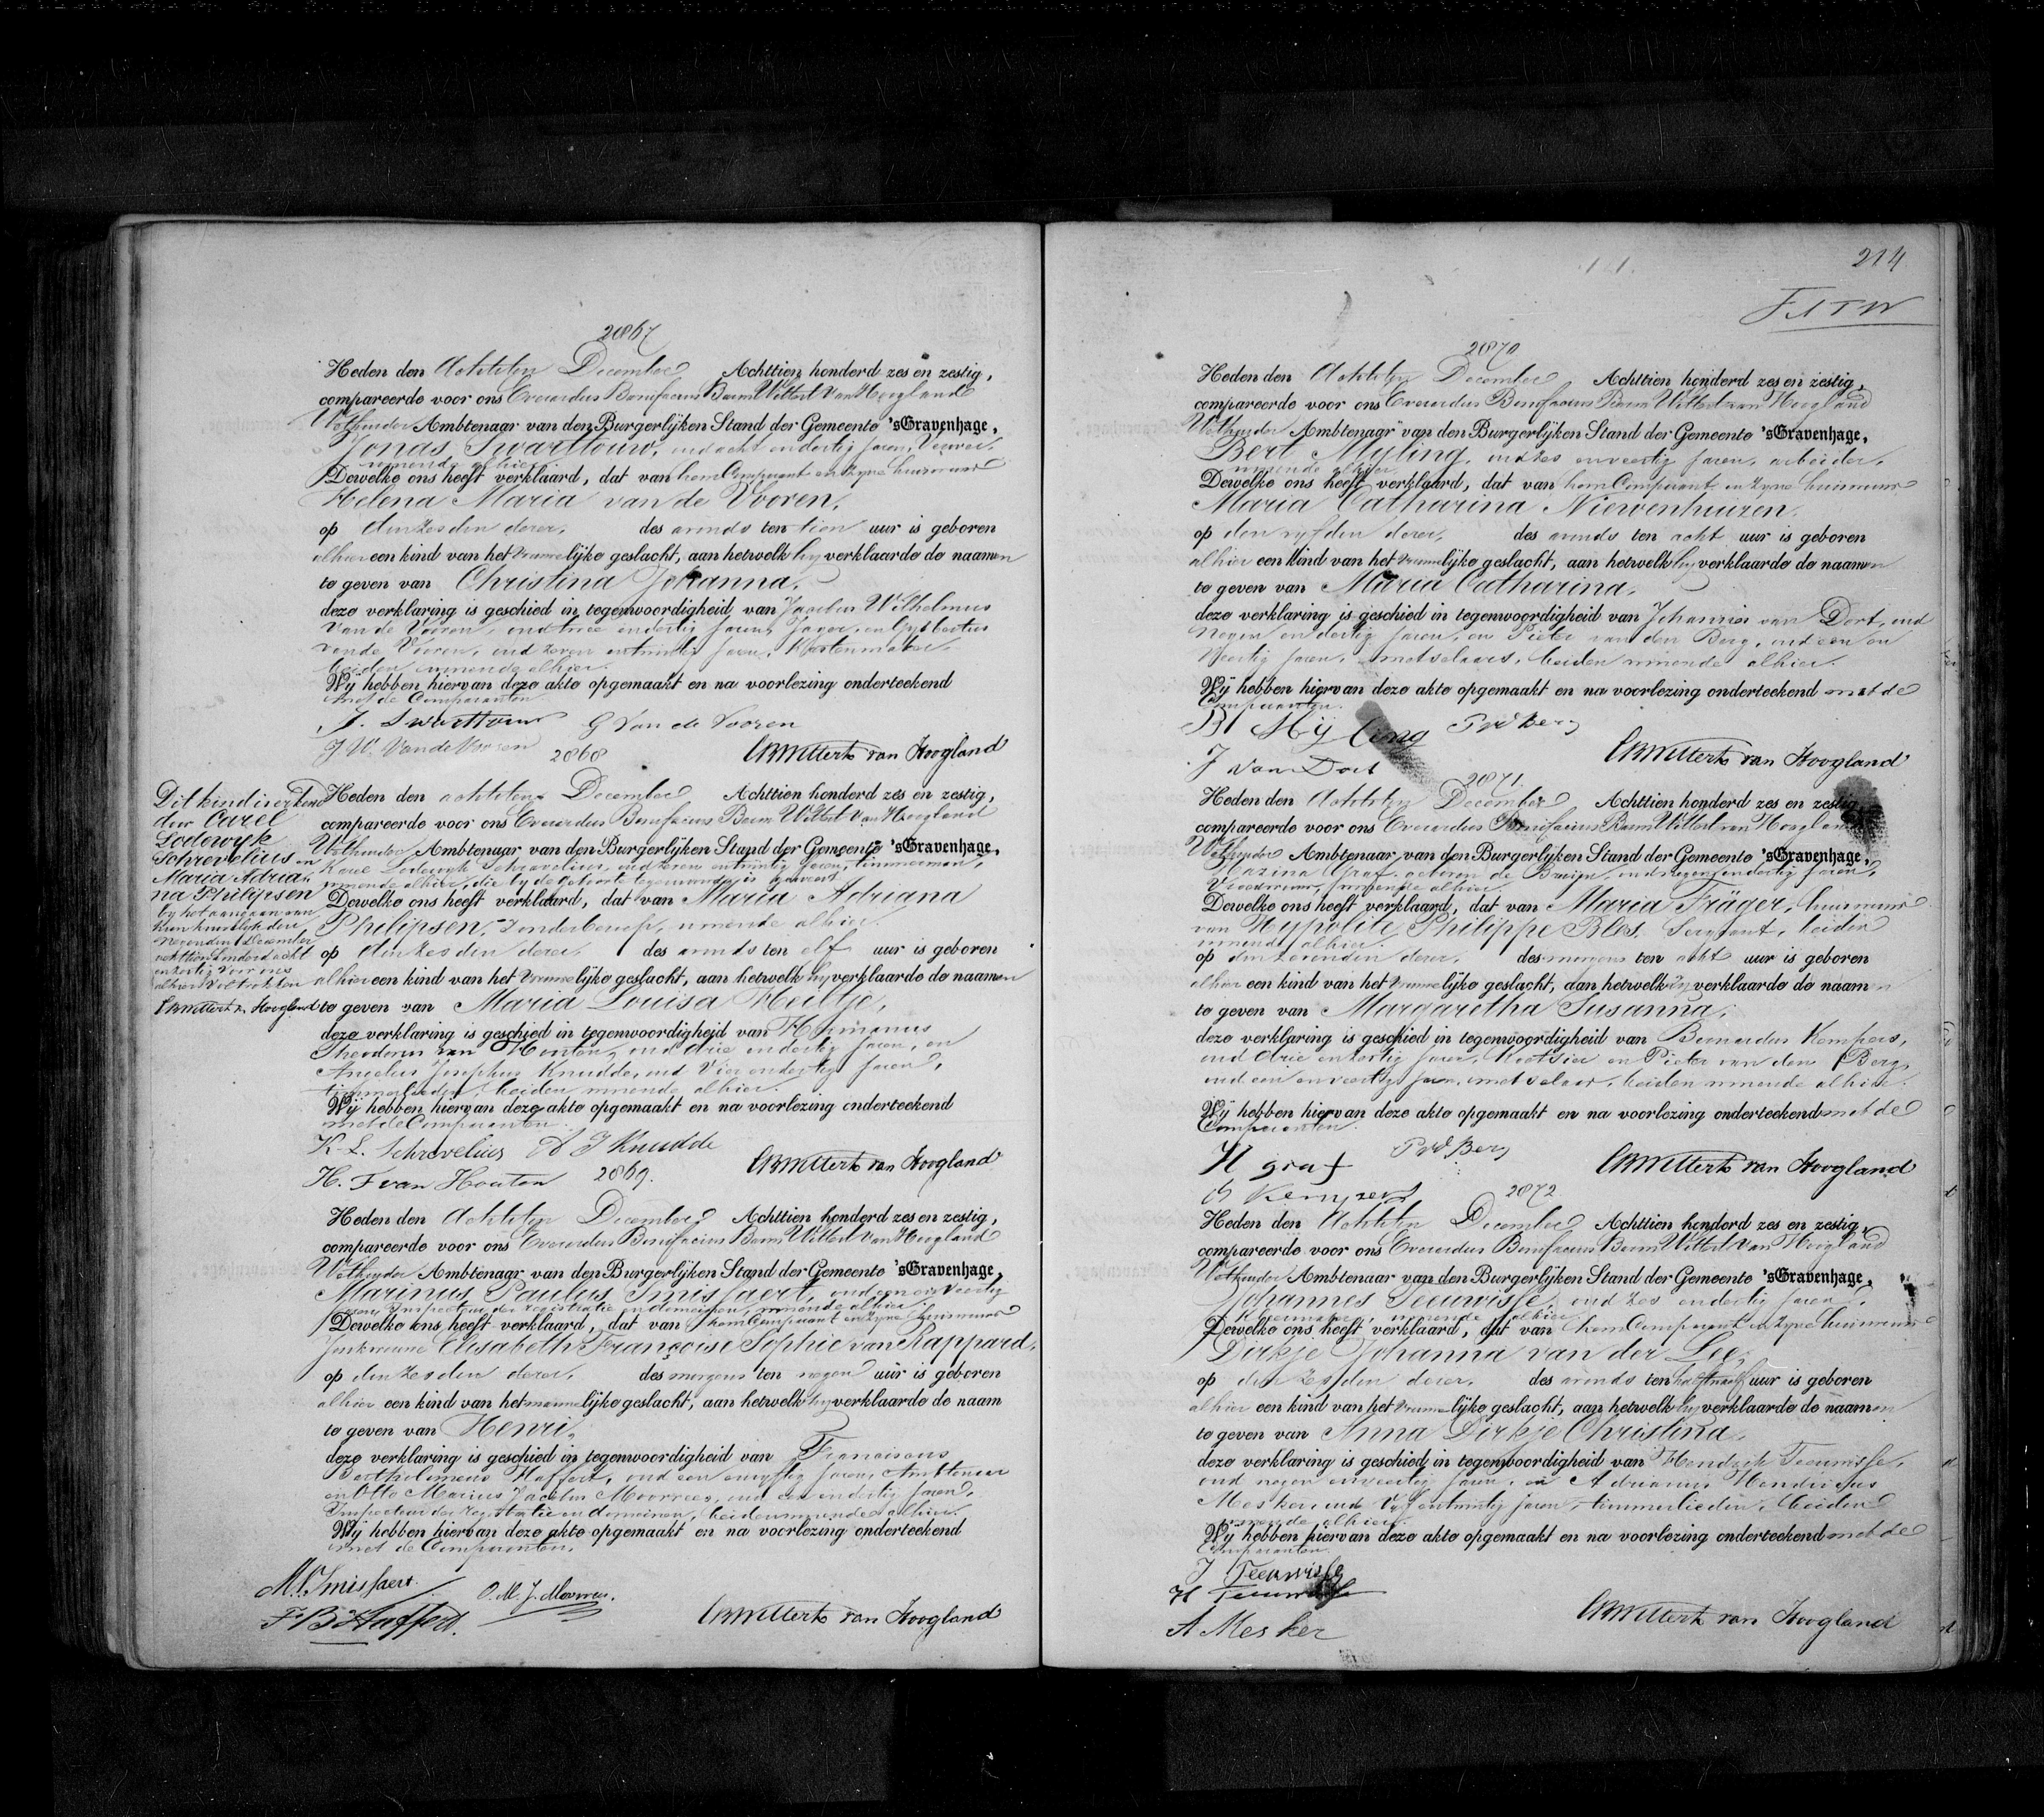 2867
Heden den Achtsten December Achttien honderd zes en zestig,
compareerde voor ons Everardus Bonifacius Beens Wittert van Hoogland
Wethouder Ambtenaar van den Burgerlijken Stand der Gemeente 's Gravenhage,
Jonas Swarttouw, oud acht en dertig jaren,
wonende alhier
Dewelke ons heeft verklaard, dat van hem Comparant en zijne huisvrouw
Helena Maria van de Vooren,
op den zesden dezer, des avonds ten tien uur is geboren
alhier een kind van het vrouwelijke geslacht, aan hetwelk hij verklaarde de naamen
te geven van Christina Johanna,
deze verklaring is geschied in tegenwoordigheid van Jacobus Wilhelmus
van de Vooren, oud twee en dertig jaren, Jager, en Gijsbertus
van de Vooren, oud zeven en twintig jaren,
beiden wonende alhier.
Wij hebben hiervan deze akte opgemaakt en na voorlezing onderteekend
met de Comparanten
J. Swarttouw G Van de Vooren
J. W. Van de Vooren EBWittert van Hoogland
2868
Dit kind is erkend
door Carel
Lodewyk
Schrevelius en
Maria Adria-
na Philipsen
by het aangaan van
hun huwelijk den
negenden December
achttien honderd acht
en zestig voor ons
alhier voltrokken
EBWittert v. Hoogland
Heden den achtsten December Achttien honderd zes en zestig,
compareerde voor ons Everardus Bonifacius Beens Wittert van Hoogland
Wethouder Ambtenaar van den Burgerlijken Stand der Gemeente 's Gravenhage,
Karel Lodewyk Schrevelius, oud zeven en twintig jaren, timmerman,
wonende alhier, die by de geboorte tegenwoordig is geweest
Dewelke ons heeft verklaard, dat van Maria Adriana
Philipsen, zonder beroep, wonende alhier.
op den zesden dezer, des avonds ten elf uur is geboren
alhier een kind van het vrouwelijke geslacht, aan hetwelk hij verklaarde de naamen
te geven van Maria Louisa Heiltje,
deze verklaring is geschied in tegenwoordigheid van Hermanus
Theodorus van Houten, oud drie en dertig jaren, en
Angelus Josephus Knudde, oud vier en dertig jaren,
timmerlieden, beiden wonende alhier.
Wij hebben hiervan deze akte opgemaakt en na voorlezing onderteekend
met de Comparanten
K. L. Schrevelius A J Knudde
H. T van Houten EBWittert van Hoogland
2869.
Heden den Achtsten December Achttien honderd zes en zestig,
compareerde voor ons Everardus Bonifacius Beens Wittert van Hoogland
Wethouder Ambtenaar van den Burgerlijken Stand der Gemeente 's Gravenhage,
Marinus Paulus Smissaert, oud een en veertig
jaren, Inspecteur der registratie en domeinen, wonende alhier
Dewelke ons heeft verklaard, dat van hem Comparant en zijne huisvrouw
Jonkvrouwe Elisabeth Françoise Sophie van Rappard,
op den zesden dezer, des morgens ten negen uur is geboren
alhier een kind van het mannelijke geslacht, aan hetwelk hij verklaarde de naam
te geven van Henri,
deze verklaring is geschied in tegenwoordigheid van Franciscus
Bartholomeus Haffert, oud een en vijftig jaren, Ambtenaar
en Otto Marius Jacobus Moorrees, oud een en dertig jaren,
Inspecteur der registratie en domeinen, beiden wonende alhier.
Wij hebben hiervan deze akte opgemaakt en na voorlezing onderteekend
met de Comparanten,
M. P. Smissaert. O. M. J. Moorrees.
F. B. Haffert. EBWittert van Hoogland
214
2870
Heden den Achtsten December Achttien honderd zes en zestig,
compareerde voor ons Everardus Bonifacius Beens Wittert van Hoogland
Wethouder Ambtenaar van den Burgerlijken Stand der Gemeente 's Gravenhage,
Bert Myling, oud zes en veertig jaren, arbeider,
wonende alhier
Dewelke ons heeft verklaard, dat van hem Comparant en zijne huisvrouw
Maria Catharina Niewenhuizen,
op den vyfden dezer, des avonds ten acht uur is geboren
alhier een kind van het vrouwelijke geslacht, aan hetwelk hij verklaarde de naamen
te geven van Maria Catharina,
deze verklaring is geschied in tegenwoordigheid van Johannes van Dort, oud
negen en dertig jaren, en Pieter van den Berg, oud een en
veertig jaren, metselaars, beiden wonende alhier.
Wij hebben hiervan deze akte opgemaakt en na voorlezing onderteekend met de
Comparanten.
B Mÿling PvdBerg
J van Dort EBWittert van Hoogland
2871
Heden den Achtsten December Achttien honderd zes en zestig,
compareerde voor ons Everardus Bonifacius Beens Wittert van Hoogland
Wethouder Ambtenaar van den Burgerlijken Stand der Gemeente 's Gravenhage,
Hazina Graf geboren de Bruijn, oud negen en dertig jaren,
Vroedvrouw, wonende alhier
Dewelke ons heeft verklaard, dat van Maria Träger, huisvrouw
van Hypolite Philippe Bles, Sergeant, beiden
wonende alhier.
op den zevenden dezer, des morgens ten acht uur is geboren
alhier een kind van het vrouwelijke geslacht, aan hetwelk zy verklaarde de naamen
te geven van Margaretha Susanna,
deze verklaring is geschied in tegenwoordigheid van Bernardus Kempers,
oud drie en zestig jaren, koetsier en Pieter van den Berg,
oud een en veertig jaren, metselaar, beiden wonende alhier.
Wij hebben hiervan deze akte opgemaakt en na voorlezing onderteekend met de
Comparanten.
H graf PvdBerg
B Kempers EBWittert van Hoogland
2872
Heden den Achtsten December Achttien honderd zes en zestig,
compareerde voor ons Everardus Bonifacius Beens Wittert van Hoogland
Wethouder Ambtenaar van den Burgerlijken Stand der Gemeente 's Gravenhage,
Johannes Teeuwisse, oud zes en dertig jaren,
wonende alhier
Dewelke ons heeft verklaard, dat van hem Comparant en zijne huisvrouw
Dirkje Johanna van der Lee,
op den zesden dezer, des avonds ten half twaalf uur is geboren
alhier een kind van het vrouwelijke geslacht, aan hetwelk hij verklaarde de naamen
te geven van Anna Dirkje Christina,
deze verklaring is geschied in tegenwoordigheid van Hendrik Teeuwisse,
oud negen en veertig jaren, en Adrianus Hendricus
Mesker, oud vyf en twintig jaren, timmerlieden, beiden
wonende alhier.
Wij hebben hiervan deze akte opgemaakt en na voorlezing onderteekend met de
Comparanten.
J Teeuwisse
H Teeuwisse
A Mesker EBWittert van Hoogland